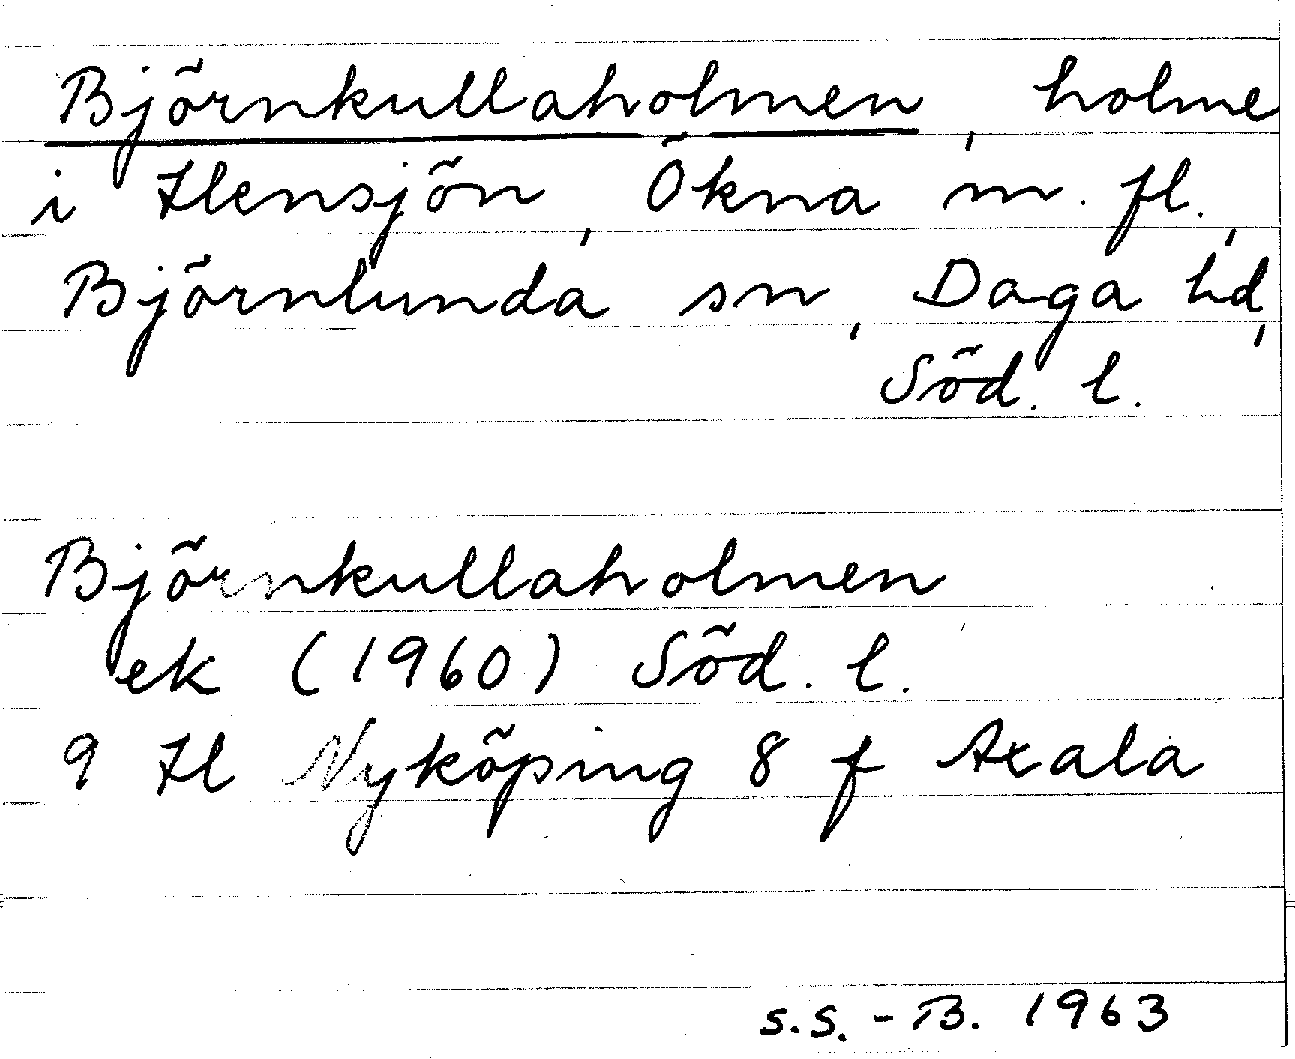 Björnkullaholmen, holme
i Hensjön, Ökna m. fl.,
Björnlunda sn, Daga hd,
Söd. l.
Björnkullaholmen
ek (1960) Söd. l.
9 H Nyköping 8 f Axala
S.S.-B. 1963